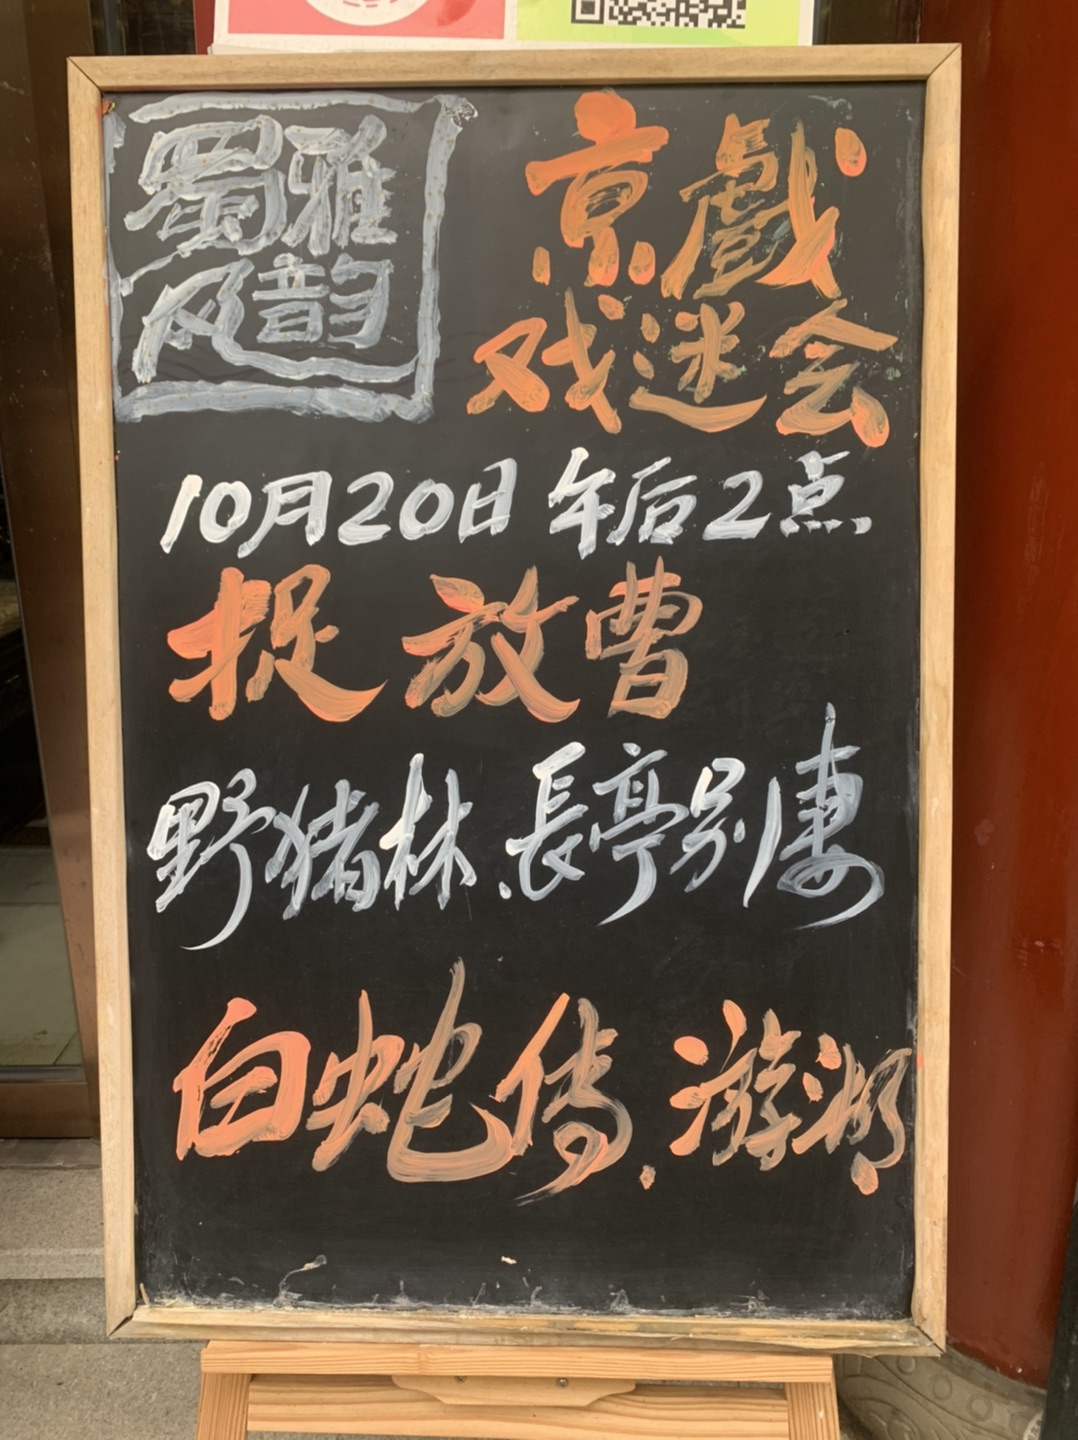 蜀雅
风韵
京戲
戏迷会
10月20日 午后2点
捉放曹
野猪林.長亭别凄
白蛇傳.游湖